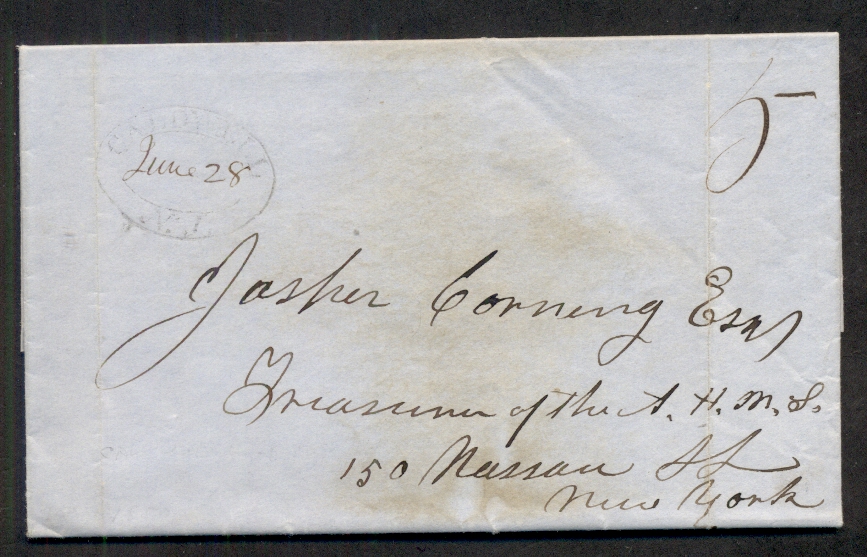 CALDWELL
June 28
N.J.
5
Jasper Corning Esqr
Treasurer of the A. H. M. S.
150 Nassau St
New York